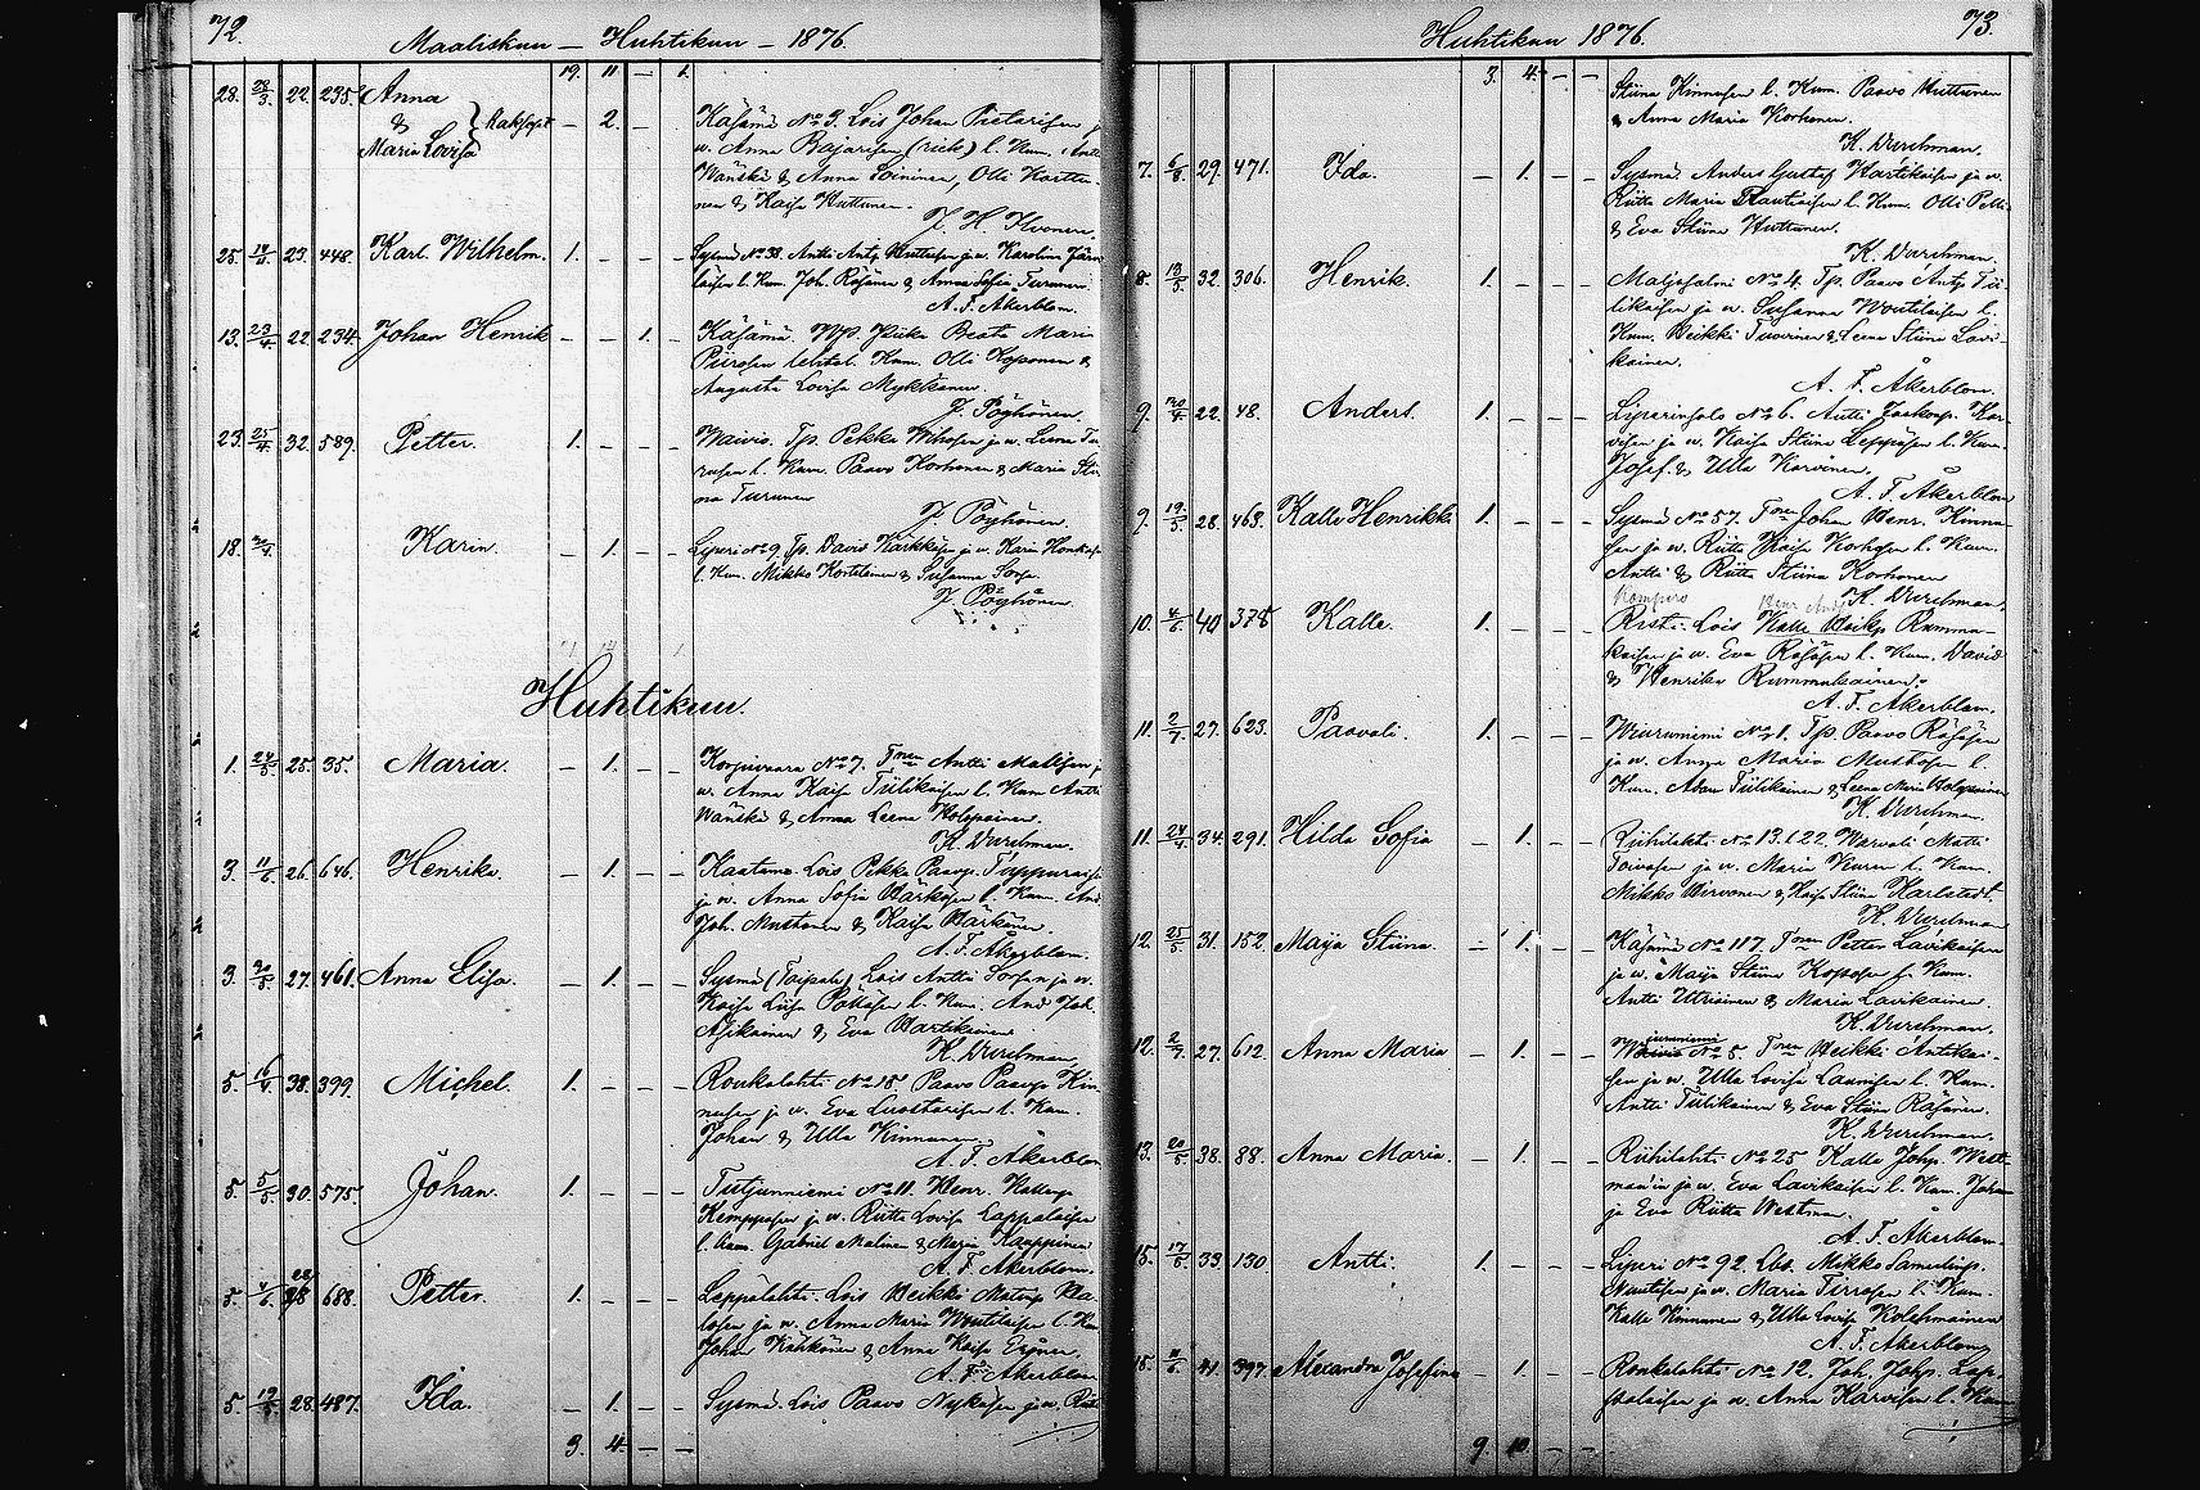 72.
Maaliskuu – Huhtikuu – 1876.
19. 11 – 1.
28. 28/3. 22. 235. Anna
& Maria Lovisa } Kaksoset – 2. –
Käsämä No 3. Lois Johan Pietarisen
w. Anna Bajarisen (rieh) l. Kum. Antti
Wänskä & Anna Soininen, Olli Korttu-
nen & Kaisa Huttunen.
J. H. Ilvonen.
25. 23. 448. Karl. Wilhelm. 1. – – –
Sysmä No 38. Antti Antp. Huttusen ja w. Karolina Järve-
läisen l. Kum. Joh. Räsänen & Anna Sofia Turunen.
A. F. Åkerblom.
13. 23/4. 22. 234. Johan Henrik – – 1. –
Käsämä. Piika Beata Maria
Piirosen Kum. Olli Koponen &
Augusta Lovisa Mykkänen.
J. Pöyhönen.
23. 25/4. 32. 589. Petter. 1. – – –
Waivio. Tp. Pekka Wihosen ja w. Leena Tu-
rusen l. Kum. Paavo Korhonen & Maria Stii-
na Turunen
J. Pöyhönen.
18. 30/4. Karin. – 1. – –
Liperi No 9. Tp. David Kärkkäsen ja w. Karin
l. Kum. Mikko Kortelainen & Susanna Sorsa.
J. Pöyhönen.
Huhtikuu.
1. 24/5. 25. 35. Maria. – 1. – –
Korpivaara No 7. Tnen Antti Malisen
w. Anna Kaisa Tiilikaisen l. Kum Antti
Wänskä & Anna Leena Holopainen.
K. Durchman.
3. 11/6. 26. 646. Henrika. – 1. – –
Kaatamo. Lois Pekka Paavop. Tuppuraisen
ja w. Anna Sofia Härkösen l. Kum. And
Joh. Mustonen & Kaisa Härkönen.
A. F. Åkerblom.
3. 20/5. 27. 461. Anna Elisa. – 1. – –
Sysmä (Taipale) Lois Antti Sorsan ja w.
Kaisa Liisa Pölläsen l. Kum. And Joh.
Asikainen & Eva Hartikainen
K. Durchman
5. 16/4. 38. 399. Michel. 1. – – –
Roukalahti No 15 Paavo Paavop Kin-
nusen ja w. Eva Luostarisen l. Kum.
Johan & Ulla Kinnunen.
A. F. Åkerblom
5. 5/5. 30. 575. Johan. 1. – – –
Tutjunniemi No 11. Henr. Kallenp.
Kemppasen ja w. Riitta Lovisa Lappalaisen
l. Kum. Gabriel Malinen & Maria Kauppinen
A. F. Åkerblom.
5. 4/6. 28 688. Petter. 1. – – –
Leppälahti. Lois Heikki Matinp
ja w. Anna Maria Woutilaisen l. Kum
Johan Kähkönen & Anna Kaisa Eronen.
A. F. Åkerblom
5. 28. 487. Ida. – 1. – –
Sysmä. Lois Paavo Nykäsen ja w. Riitta
3. 4. – –
Huhtikuu 1876.
73.
3. 4. – –
Stiina Kinnusen l. Kum. Paavo Huttunen
& Anna Maria Korhonen.
K. Durchman.
7. 6/8. 29. 471. Ida. – 1. – –
Sysmä. Anders Gustaf Hartikaisen ja w.
Riitta Maria Rautiaisen l. Kum. Olli
& Eva Stiina Huttunen.
K. Durchman.
8. 13/5. 32. 306. Henrik. 1. – – –
Maljasalmi No 4. Tp. Paavo Antp Tii-
likaisen ja w. Susanna Woutilaisen l.
Kum. Heikki Tuovinen & Leena Stiina Lavi-
kainen.
A. F. Åkerblom.
9. 30/4. 22. 48. Anders. 1. – – –
Liperinsalo No 6. Antti Jaakonp. Kar-
visen ja w. Kaisa Stiina Leppäsen l. Kum.
Josef. & Ulla Karvinen.
A. F. Åkerblom
9. 19/5. 28. 463. Kalle Henrikki 1. – – –
Sysmä No 57. Tnen Johan Henr. Kinnu-
sen ja w. Riitta Kaisa Korhosen l. Kum.
Antti & Riitta Stiina Korhonen
K. Durchman.
Kompero Henr Andp
10. 4/6. 40 378 Kalle. 1. – – –
Risti. Lois Kalle Heikp Rummu-
kaisen ja w. Eva Räsäsen l. Kum. David
& Henrika Rummukainen.
A. F. Åkerblom.
11. 2/7. 27. 623. Paavali. 1. – – –
Wiurumiemi No 1. Tp. Paavo Räsäsen
ja w. Anna Maria Mustosen l.
Kum. Adam Tiilikainen & Leena Maria Holopainen
K. Durchman.
11. 24/4. 34. 291. Hilda Sofia – 1. – –
Riihilahti No 13. & 22. Warvali Matti
Toivasen ja w. Maria Kuren l. Kum.
Mikko Hirvonen & Kaisa Stiina Karlstedt.
K. Durchman
12. 25/5. 31. 152. Maija Stiina. – 1. – –
Käsämä No 117. Tnen Petter Lavikaisen
ja w. Maija Stiina Koposen l. Kum.
Antti Utriainen & Maria Lavikainen.
K. Durchman.
12. 2/7. 27. 612. Anna Maria – 1. – –
Waivio No 5. Tnen Heikki Antikai-
sen ja w. Ulla Lovisa Launisen l. Kum.
Antti Tiilikainen & Eva Stiina Räsänen.
K. Durchman.
13. 20/5. 38. 88. Anna Maria. – 1. – –
Riihilahti No 25 Kalle Johp. West-
man'in ja w. Eva Lavikaisen l. Kum. Johan
ja Eva Riitta Westman.
A. F. Åkerblom.
15. 17/6. 33. 130. Antti. 1. – – –
Liperi No 92. Lbt. Mikko Samulinp.
Nuutisen ja w. Maria Tirrosen l. Kum.
Kalle Kinnunen & Ulla Lovisa Kolehmainen
A. F. Åkerblom
15. 11/6. 41. 397. Alexandra Josefina – 1. – –
Roukalahti No 12. Joh. Johp. Lap-
palaisen ja w. Anna Karvisen l. Kum
9. 10. – –